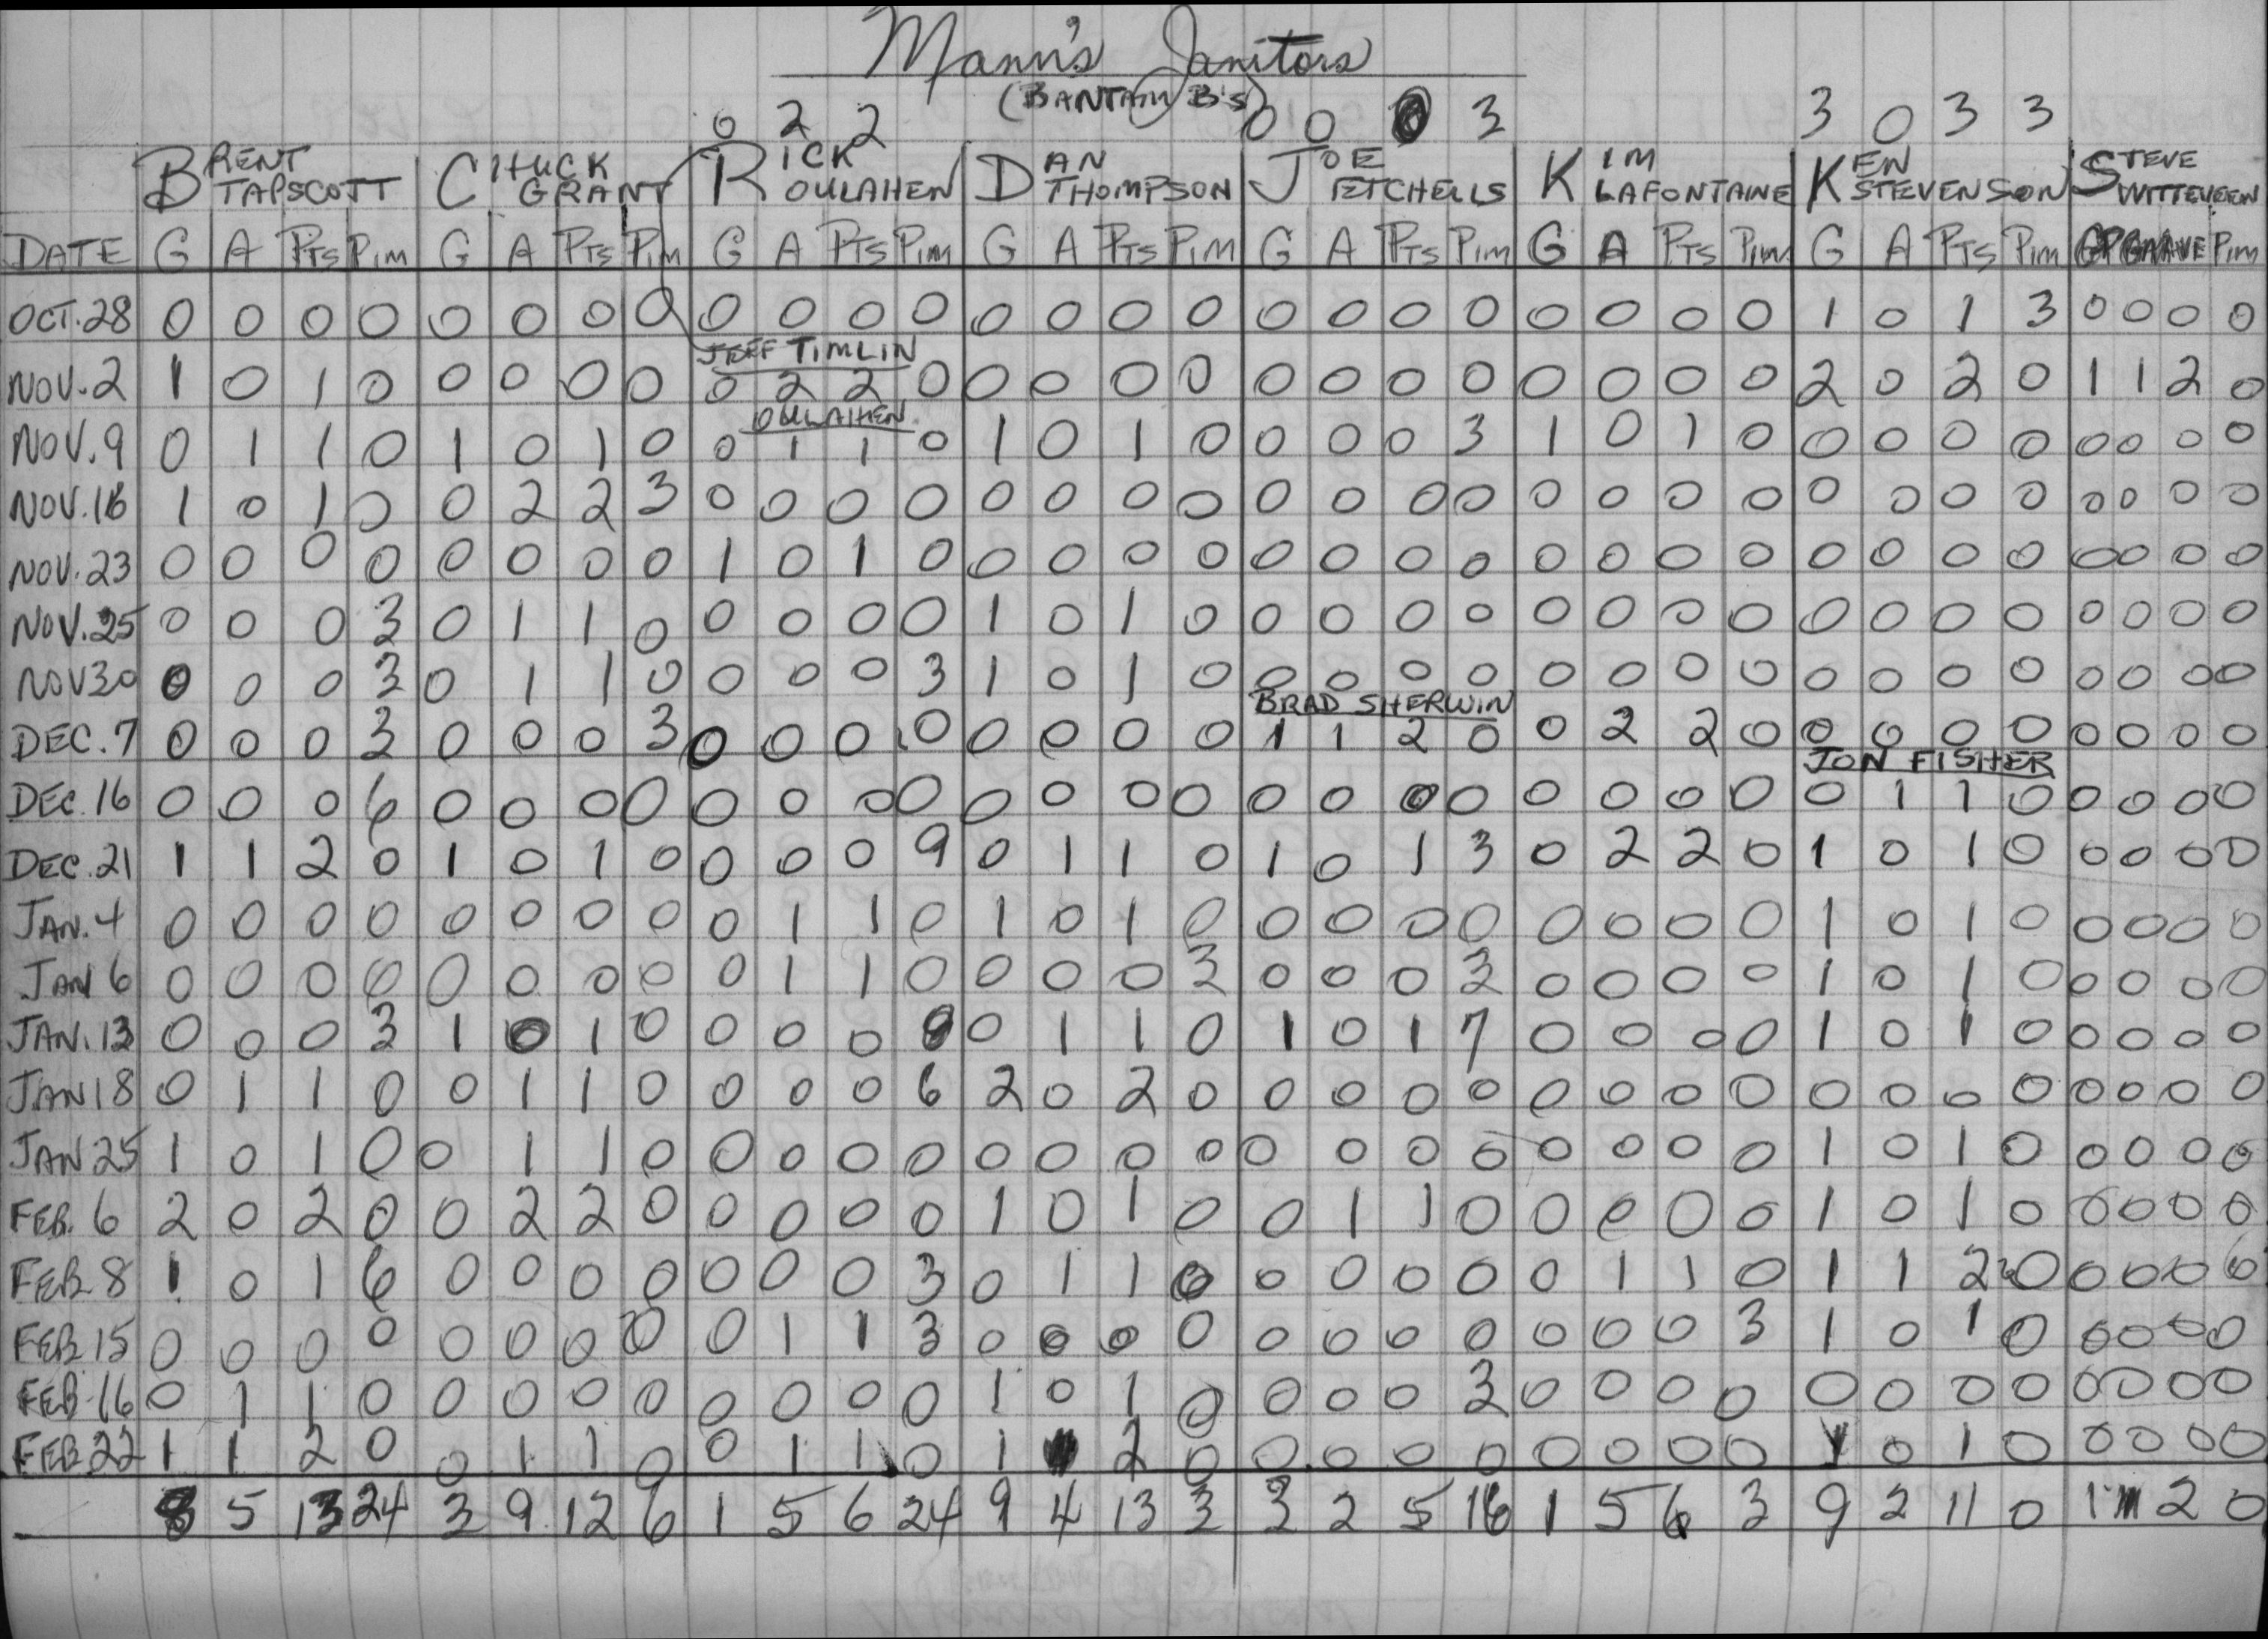 Mann's Janitors
(BANTAM B's)
0 2 2 0 0 0 3 3 0 3 3
BRENT TAPSCOTT CHUCK GRANT RICK OULAHEN DAN THOMPSON JOE PETCHELLS KIM LAFONTAINE KEN STEVENSON STEVE WITTEVEEN
DATE G A PTS PIM G A PTS PIM G A PTS PIM G A PTS PIM G A PTS PIM G A PTS PIM G A PTS PIM GP GA AVE PIM
OCT.28 0 0 0 0 0 0 0 0 0 0 0 0 0 0 0 0 0 0 0 0 0 0 0 0 1 0 1 3 0 0 0 0
JEFF TIMLIN
NOV.2 1 0 1 0 0 0 0 0 0 2 2 0 0 0 0 0 0 0 0 0 0 0 0 0 2 0 2 0 1 1 2 0
OULAHEN
NOV.9 0 1 1 0 1 0 1 0 0 1 1 0 1 0 1 0 0 0 0 3 1 0 1 0 0 0 0 0 0 0 0 0
NOV.16 1 0 1 0 0 2 2 3 0 0 0 0 0 0 0 0 0 0 0 0 0 0 0 0 0 0 0 0 0 0 0 0
NOV.23 0 0 0 0 0 0 0 0 1 0 1 0 0 0 0 0 0 0 0 0 0 0 0 0 0 0 0 0 0 0 0 0
NOV.25 0 0 0 3 0 1 1 0 0 0 0 0 1 0 1 0 0 0 0 0 0 0 0 0 0 0 0 0 0 0 0 0
NOV30 0 0 0 3 0 1 1 0 0 0 0 3 1 0 1 0 0 0 0 0 0 0 0 0 0 0 0 0 0 0 0 0
BRAD SHERWIN
DEC.7 0 0 0 3 0 0 0 3 0 0 0 0 0 0 0 0 1 1 2 0 0 2 2 0 0 0 0 0 0 0 0 0
JON FISHER
DEC.16 0 0 0 6 0 0 0 0 0 0 0 0 0 0 0 0 0 0 0 0 0 0 0 0 0 1 1 0 0 0 0 0
DEC.21 1 1 2 0 1 0 1 0 0 0 0 9 0 1 1 0 1 0 1 3 0 2 2 0 1 0 1 0 0 0 0 0
JAN.4 0 0 0 0 0 0 0 0 0 1 1 0 1 0 1 0 0 0 0 0 0 0 0 0 1 0 1 0 0 0 0 0
JAN 6 0 0 0 0 0 0 0 0 0 1 1 0 0 0 0 3 0 0 0 3 0 0 0 0 1 0 1 0 0 0 0 0
JAN.13 0 0 0 3 1 0 1 0 0 0 0 0 1 1 0 1 0 1 7 0 0 0 0 1 0 1 0 0 0 0 0
JAN 18 0 1 1 0 0 1 1 0 0 0 0 6 2 0 2 0 0 0 0 0 0 0 0 0 0 0 0 0 0 0 0 0
JAN 25 1 0 1 0 0 1 1 0 0 0 0 0 0 0 0 0 0 0 0 0 0 0 0 0 1 0 1 0 0 0 0 0
FEB. 6 2 0 2 0 0 2 2 0 0 0 0 0 1 0 1 0 0 1 1 0 0 0 0 0 1 0 1 0 0 0 0 0
FEB 8 1 0 1 6 0 0 0 0 0 0 0 3 0 1 1 0 0 0 0 0 0 1 1 0 1 1 2 0 0 0 0 0
FEB 15 0 0 0 0 0 0 0 0 0 1 1 3 0 0 0 0 0 0 0 0 0 0 0 3 1 0 1 0 0 0 0 0
FEB 16 0 1 1 0 0 0 0 0 0 0 0 0 1 0 1 0 0 0 0 3 0 0 0 0 0 0 0 0 0 0 0 0
FEB.22 1 1 2 0 0 1 1 0 0 1 1 0 1 2 0 0 0 0 0 0 0 0 0 1 0 1 0 0 0 0 0
8 5 13 24 3 9 12 6 1 5 6 24 9 4 13 3 3 2 5 16 1 5 6 3 9 2 11 0 1 2 0